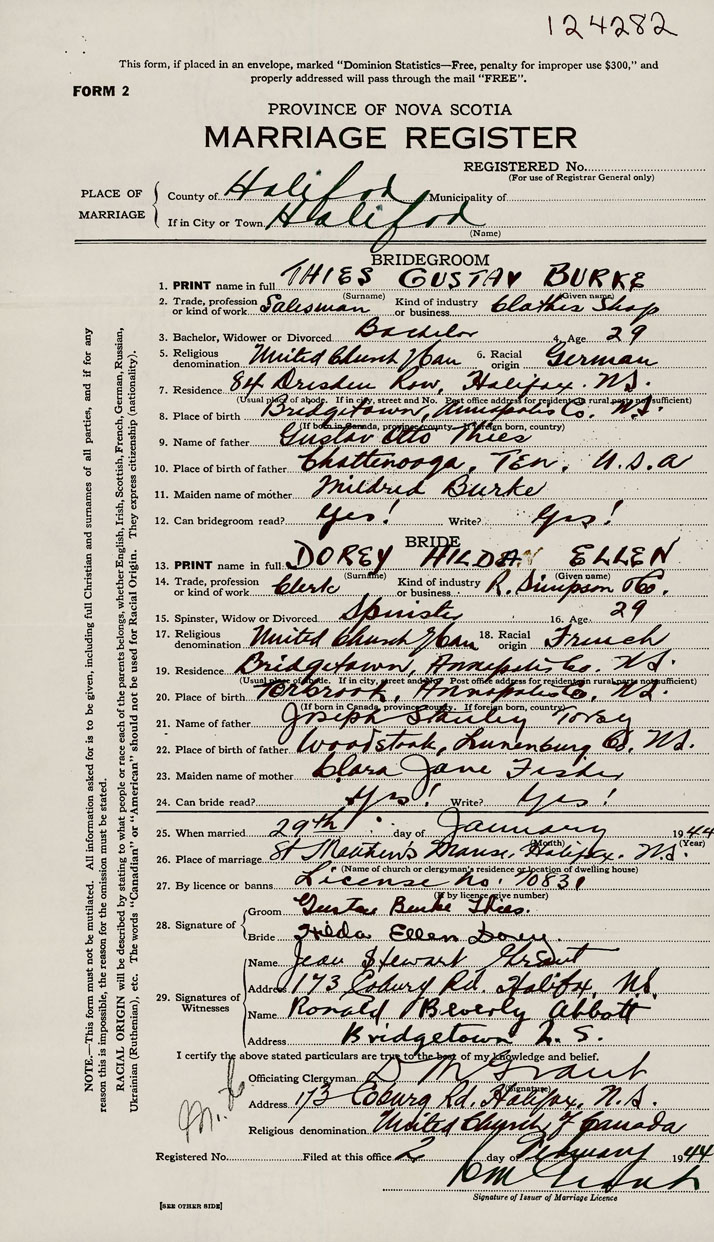 124282
This form, if placed in an envelope, marked "Dominion Statistics—Free, penalty for improper use $300," and
properly addressed will pass through the mail "FREE".
FORM 2
PROVINCE OF NOVA SCOTIA
MARRIAGE REGISTER
REGISTERED No.
(For use of Registrar General only)
PLACE OF MARRIAGE
County of Halifax Municipality of
If in City or Town Halifax
(Name)
BRIDEGROOM
1. PRINT name in full THIES GUSTAV BURKE
(Surname) (Given name)
2. Trade, profession or kind of work Salesman Kind of industry or business Clothes Shop
3. Bachelor, Widower or Divorced Bachelor 4. Age 29
5. Religious denomination United Church of Can 6. Racial origin German
7. Residence 84 Dresden Row, Halifax. N.S.
(Usual place of abode. If in city, street and No. Post office address for residents in rural parts not sufficient)
8. Place of birth Bridgetown, Annapolis Co. N.S.
(If born in Canada, province, county. If foreign born, country)
9. Name of father Gustav Otto Thies
10. Place of birth of father Chattenooga, Ten, U.S.A
11. Maiden name of mother Mildred Burke
12. Can bridegroom read? Yes! Write? Yes!
BRIDE
13. PRINT name in full DOREY HILDA ELLEN
(Surname) (Given name)
14. Trade, profession or kind of work Clerk Kind of industry or business R. Simpson Co.
15. Spinster, Widow or Divorced Spinster 16. Age 29
17. Religious denomination United Church of Can 18. Racial origin French
19. Residence Bridgetown, Annapolis Co. N.S.
(Usual place of abode. If in city, street and No. Post office address for residents in rural parts not sufficient)
20. Place of birth Torbrook, Annapolis Co, N.S.
(If born in Canada, province, county. If foreign born, country)
21. Name of father Joseph Stanley Dorey
22. Place of birth of father Woodstock, Lunenburg Co, N.S.
23. Maiden name of mother Clara Jane Fisher
24. Can bride read? Yes! Write? Yes!
25. When married 29th day of January 1944
(Month) (Year)
26. Place of marriage St Matthew's Manse, Halifax. N.S.
(Name of church or clergyman's residence or location of dwelling house)
27. By licence or banns License No. 70831
(If by licence give number)
28. Signature of
Groom Gustav Burke Thies.
Bride Hilda Ellen Dorey
29. Signatures of Witnesses
Name Jean Stewart Grant
Address 173 Coburg Rd. Halifax, NS
Name Ronald Beverly Abbott
Address Bridgetown N.S.
I certify the above stated particulars are true to the best of my knowledge and belief.
Officiating Clergyman D M Grant
(Signature)
Address 173 Coburg Rd. Halifax, N.S.
Religious denomination United Church of Canada
Registered No. Filed at this office 2 day of February 1944
DM Grant
Signature of Issuer of Marriage Licence
[SEE OTHER SIDE]
NOTE.—This form must not be mutilated. All information asked for is to be given, including full Christian and surnames of all parties, and if for any
reason this is impossible, the reason for the omission must be stated.
RACIAL ORIGIN will be described by stating to what people or race each of the parents belongs, whether English, Irish, Scottish, French, German, Russian,
Ukrainian (Ruthenian), etc. The words "Canadian" or "American" should not be used for Racial Origin. They express citizenship (nationality).